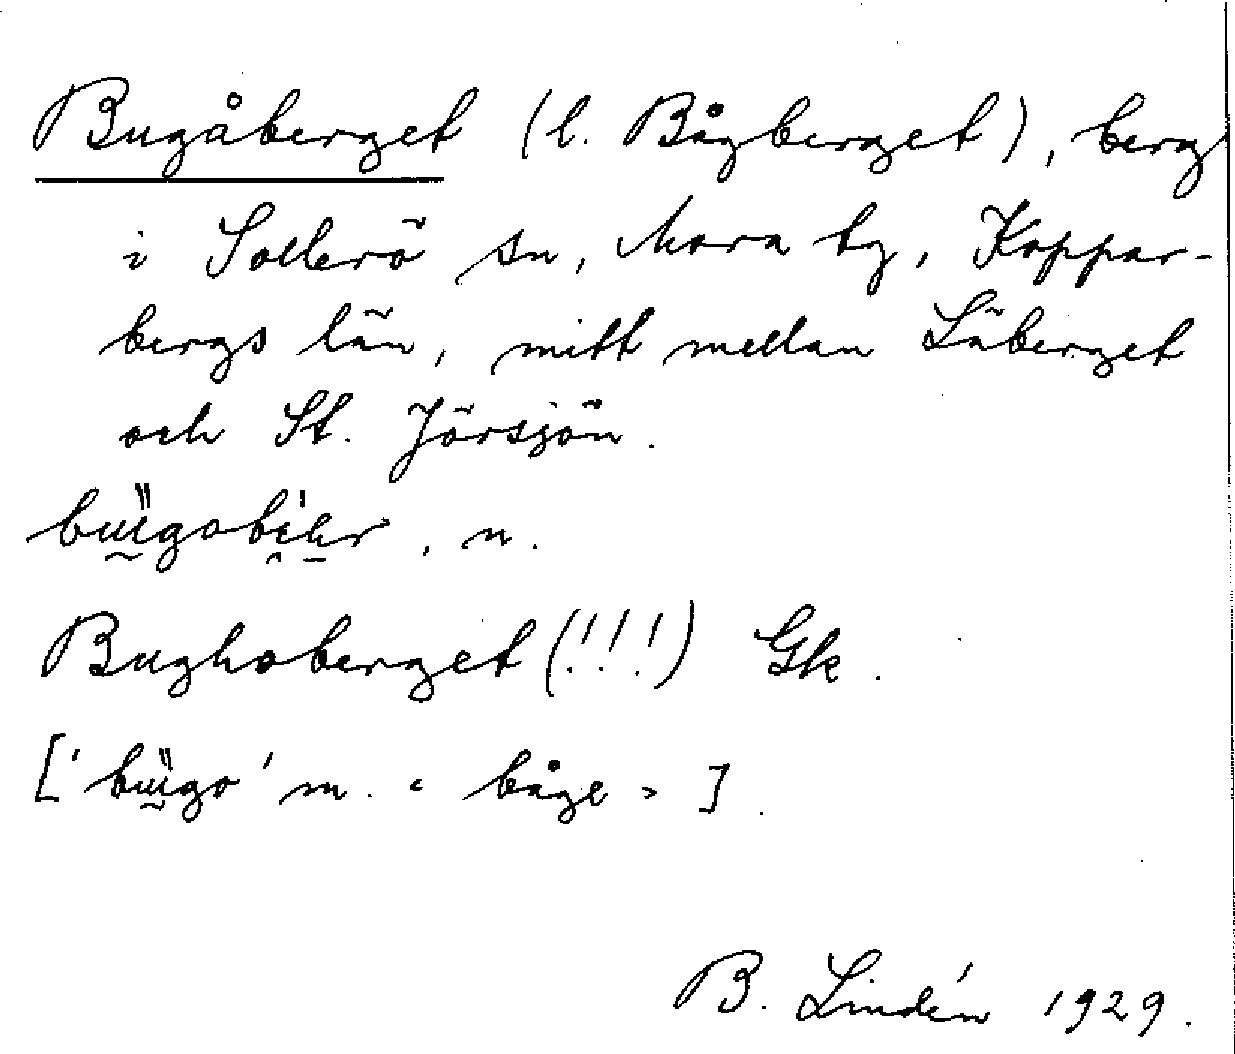 Bugåberget (l. Bågberget), berg
i Sollerö sn, Mora tg, Koppar-
bergs län, mitt mellan Läberget
och St. Jörsjön.
, n.
Bughoberget (!!!) Gk.
[' ' m. « båge » ].
B. Lindén 1929.